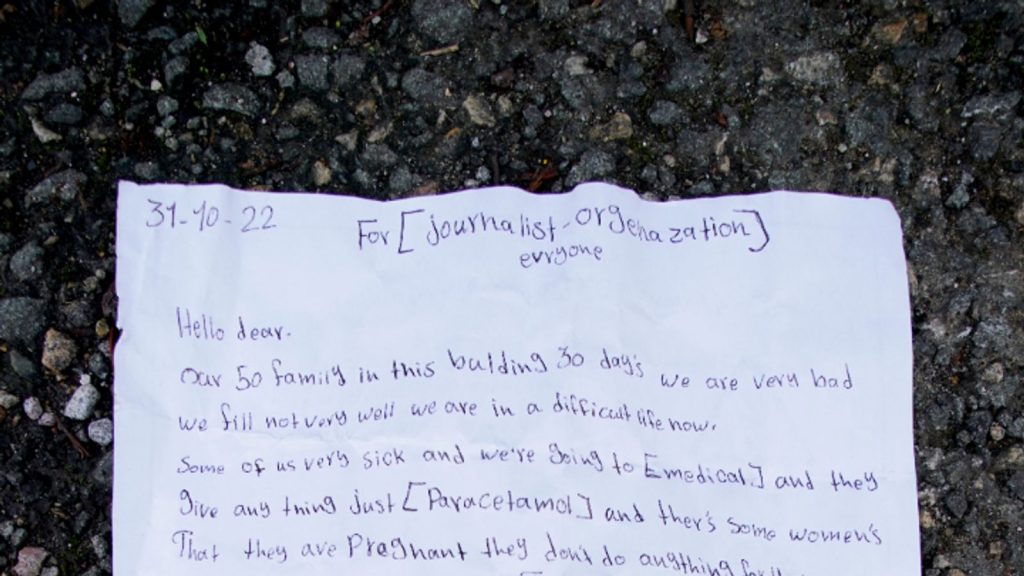 31-10-22
For [journalist-orgenazation]
evryone
Hello dear.
Our 50 family in this bulding 30 day's we are very bad
we fill not very well we are in a difficult life now.
Some of us very sick and we're going to [medical] and they
give any thing just [Paracetamol] and ther's some women's
That they are Pregnant they don't do anything for